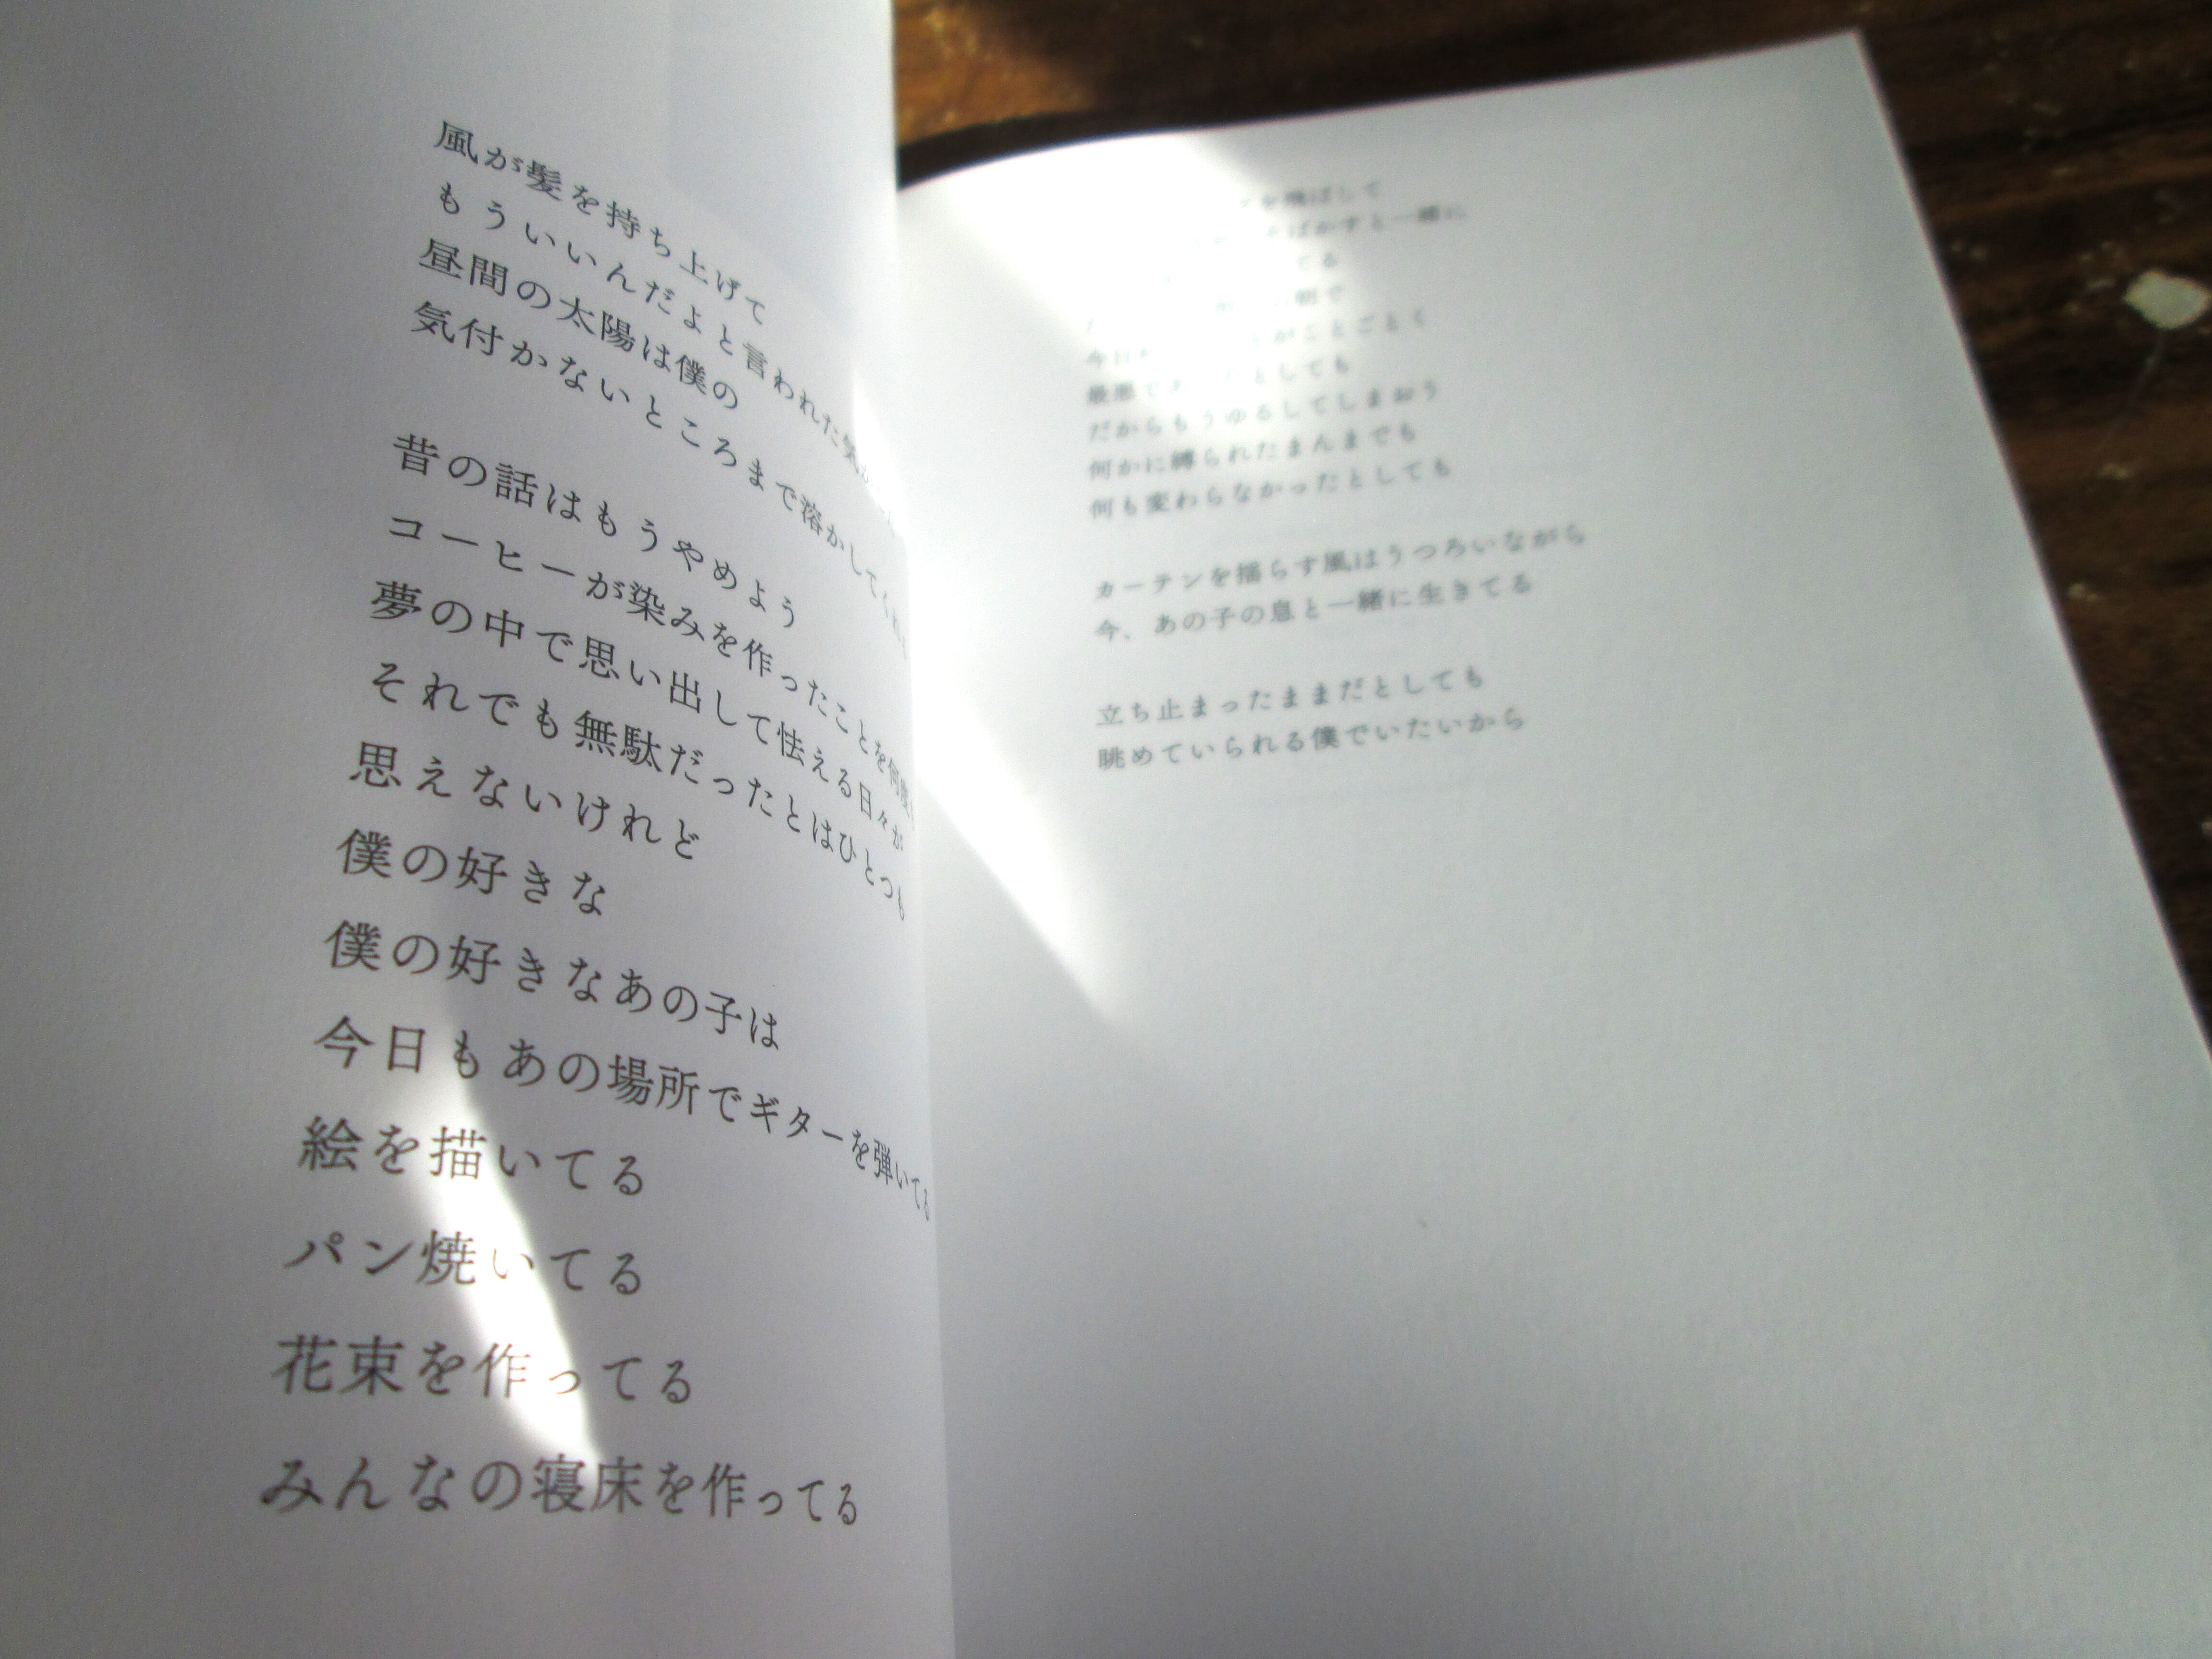 風が髪を持ち上げて
もういいんだよと言われた気
昼間の太陽は僕の
気付かないところまで溶かして
昔の話はもうやめよう
コーヒーが染みを作ったことを何度
夢の中で思い出して怯える日々が
それでも無駄だったとはひとつも
思えないけれど
僕の好きな
僕の好きなあの子は
今日もあの場所でギターを弾いてる
絵を描いてる
パン焼いてる
花束を作ってる
みんなの寝床を作ってる
を飛ばして
ばかすと一緒に
てる
朝で
今日 がことごとく
最悪で としても
だからもうゆるしてしまおう
何かに縛られたまんまでも
何も変わらなかったとしても
カーテンを揺らす風はうつろいながら
今、あの子の息と一緒に生きてる
立ち止まったままだとしても
眺めていられる僕でいたいから